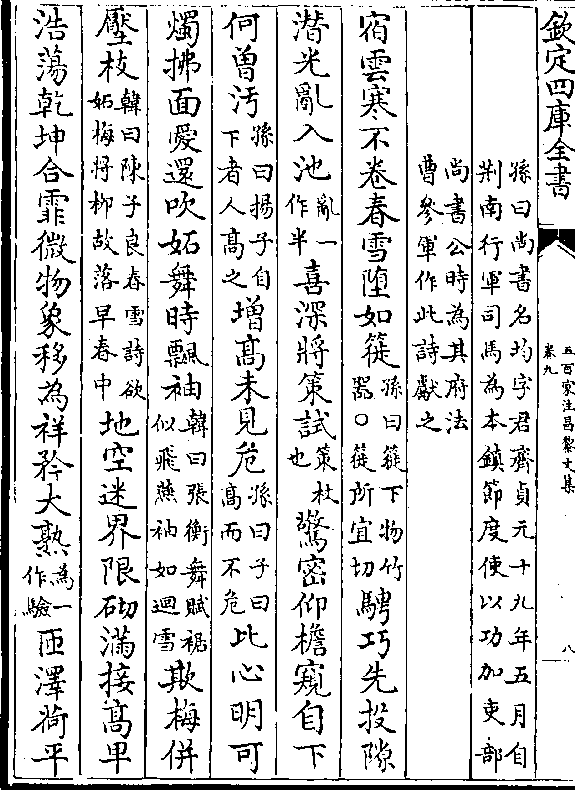 欽定四庫全書
五百家注昌黎文集
卷九
八
孫曰尚書名均字君齊貞元十九年五月自
荆南行軍司馬為本鎮節度使以功加吏部
尚書公時為其府法
曹參軍作此詩獻之
宿雲寒不卷春雪墮如簁孫曰簁下物竹器○簁所宜切騁巧先投隙
潜光亂入池亂一作半喜深將策試策杖也驚密仰檐窺自下
何曾汚孫曰揚子自下者人髙之增髙未見危孫曰子曰髙而不危比心明可
燭拂面愛還吹妬舞時飄袖韓曰張衡舞賦裾似飛燕袖如迴雪欺梅併
壓枝韓曰陳子良春雪詩欲妬梅將柳故落早春中地空迷界限砌滿接髙卑
浩蕩乾坤合霏微物象移為祥矜大熟為一作驗匝澤荷平